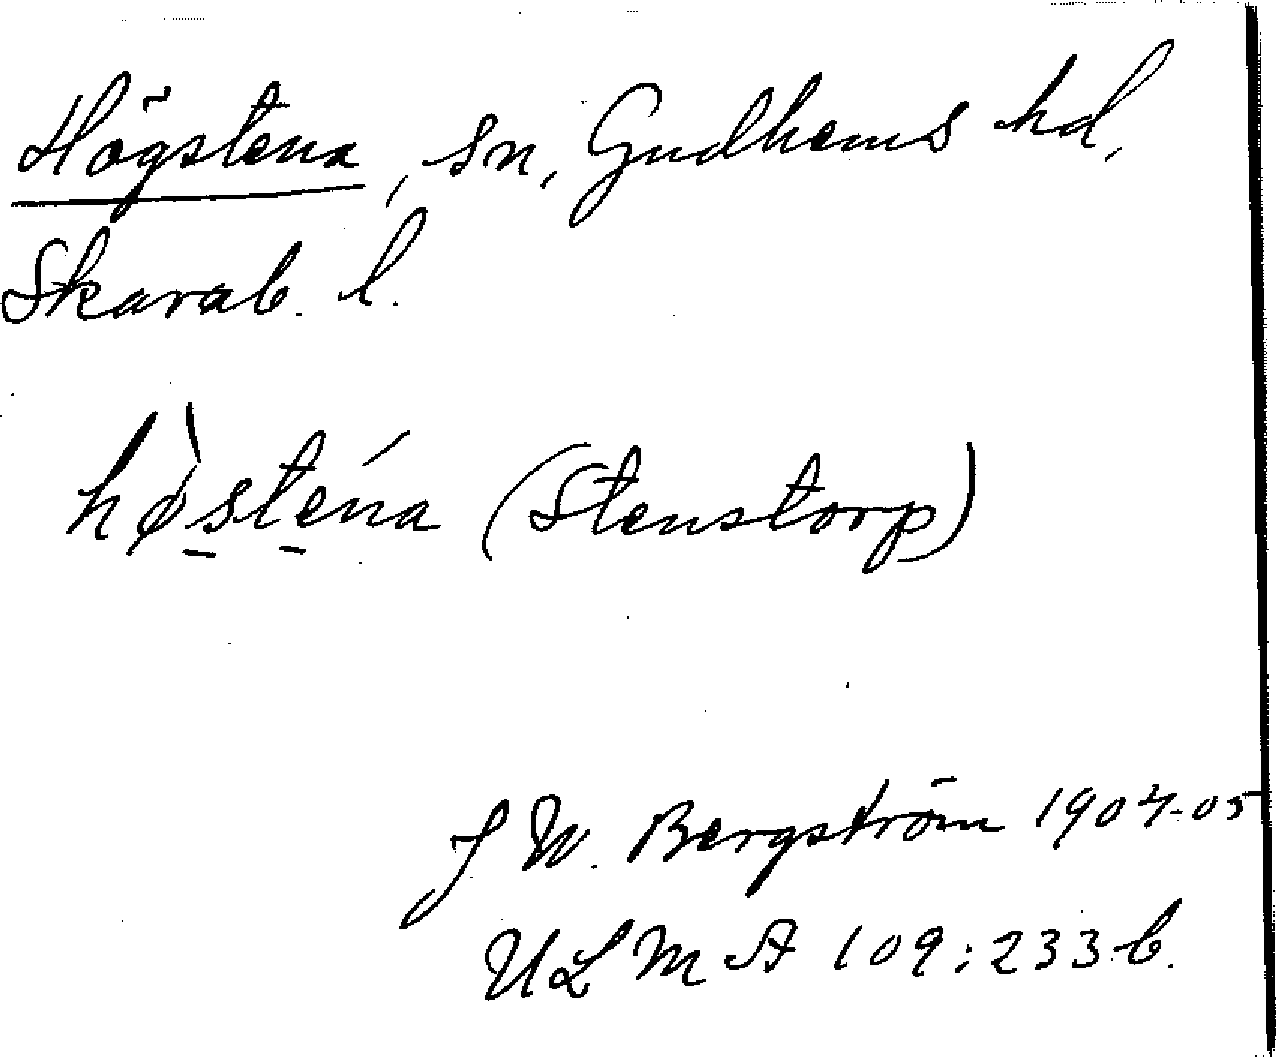 Högstena, sn, Gudhems hd,
Skarab. l.
hø̀s̠te̠ńa (Stenstorp)
J W. Bergström 1904-05
ULMA 109:233 b.